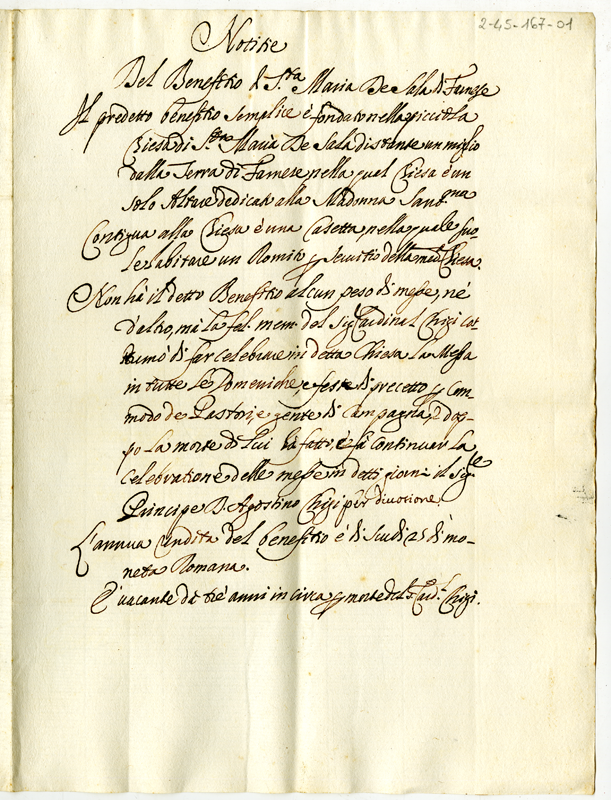 2-45-167-01
Notitie
Del Benefitio di S.ta Maria De Sala di Farnese
Il predetto benefitio semplice è fondato nella piccola
Chiesa di S.ta Maria De Sala distante un miglio
dalla Terra di Farnese, nella qual Chiesa è un
solo Altare dedicato alla Madonna Sant.ma
Contigua alla Chiesa è una Casetta, nella quale suo-
le habitare un Romito p servitio della med. Chiesa.
Non hà il detto Benefitio alcun peso di messe, nè
d'altro, mà la fel. mem. del Sig. Cardinal Chigi cos-
tumò di far celebrare in detta Chiesa la Messa
in tutte le Domeniche, e feste di precetto p com-
modo de Pastori, e gente di Campagna, e dop-
po la morte di lui hà fatto, e fà continuar la
celebratione delle messe in detti giorni il Sig.e
Principe D. Agostino Chigi per divotione.
L'annua rendita del benefitio è di scudi 25 di mo-
neta Romana.
È vacante da trè anni in circa p morte del S. Card. Chigi.